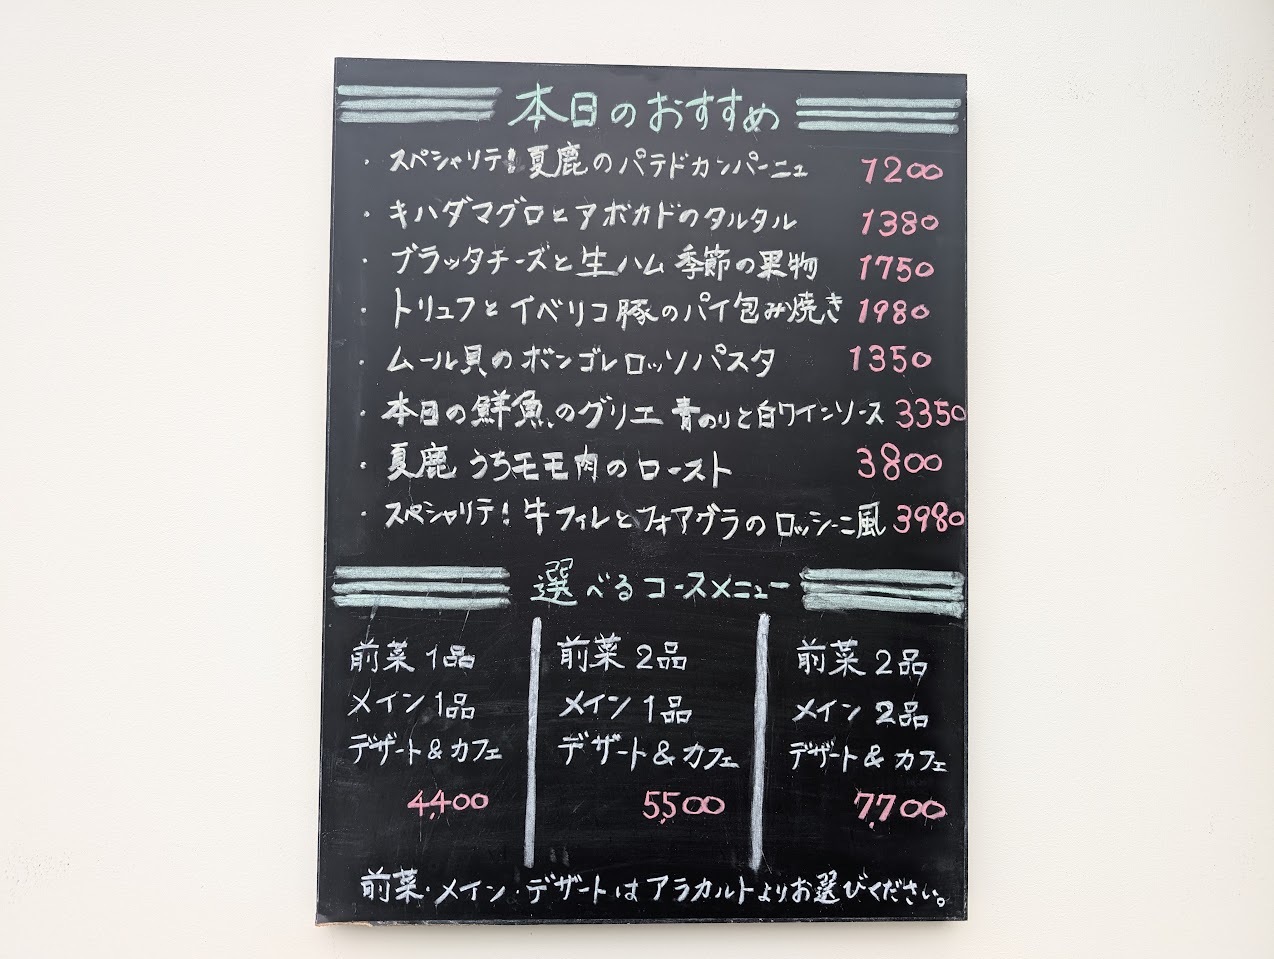 本日のおすすめ
・スペシャリテ!夏鹿のパテドカンパーニュ 1200
・キハダマグロとアボカドのタルタル 1380
・ブラッタチーズと生ハム 季節の果物 1750
・トリュフとイベリコ豚のパイ包み焼き 1980
・ムール貝のボンゴレロッソパスタ 1350
・本日の鮮魚のグリエ 青のりと白ワインソース 3350
・夏鹿 うちモモ肉のロースト 3800
・スペシャリテ!牛フィレとフォアグラのロッシーニ風 3980
選べるコースメニュー
前菜 1品
メイン 1品
デザート & カフェ
4,400
前菜 2品
メイン 1品
デザート & カフェ
5,500
前菜 2品
メイン 2品
デザート & カフェ
7,700
前菜・メイン・デザートはアラカルトよりお選びください。